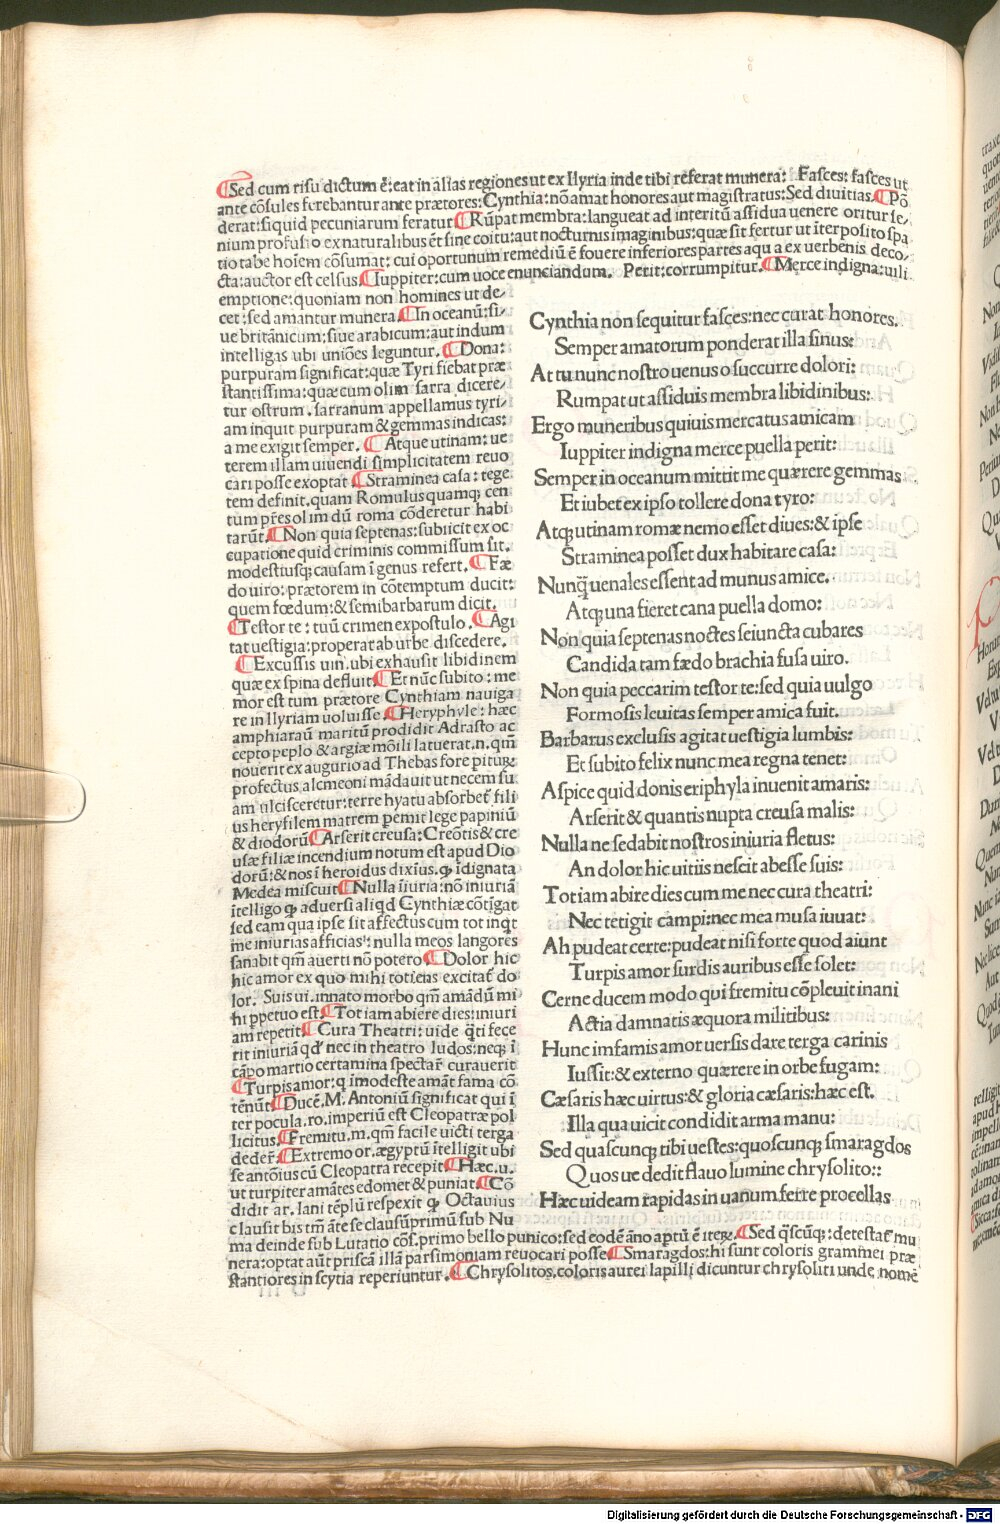 ¶Sed cum risu dictum ē: eat in alias regiones ut ex Ilyria inde tibi referat munera: Fasces: fasces ut
ante cōsules ferebantur ante prætores: Cynthia: nō amat honores aut magistratus: Sed diuitias. ¶Pō
derat: siquid pecuniarum feratur ¶Rūpat membra: langueat ad interitū assidua uenere oritur se,
nium profusio ex naturalibus ēt sine coitu: aut nocturnis imaginibus: quæ sit fertur ut īterposito spa
tio tabe hoīem cōsumat: cui oportunum remediū ē fouere inferiores partes aqua ex uerbenis deco,
cta: auctor est celsus. ¶Iuppiter: cum uoce enunciandum. Petit: corrumpitur. ¶Merce indigna: uili
emptione: quoniam non homines ut de-
cet: sed amantur munera. ¶In oceanū: si-
ue britānicum: siue arabicum: aut indum
intelligas ubi uniōes leguntur. ¶Dona:
purpuram significat: quæ Tyri fiebat præ
stantissima: quæ cum olim sarra dicere-
tur ostrum. sarranum appellamus tyri-
am inquit purpuram & gemmas indicas:
a me exigit semper. ¶Atque utinam: ue
terem illam uiuendi simplicitatem reuo
cari posse exoptat ¶Straminea casa: tege
tem definit. quam Romulus quamq; cen
tum pr̄es olim dū roma cōderetur habi
tarūt. ¶Non quia septenas: subiicit ex oc
cupatione quid criminis commissum sit.
modestiusq; causam ī genus refert. ¶Fæ
do uiro: prætorem in cōtemptum ducit:
quem fœdum: & semibarbarum dicit.
¶Testor te: tuū crimen expostulo. ¶Agi
tat uestigia: properat ab urbe discedere.
¶Excussis uin. ubi exhausit libidinem
quæ ex spina defluit. ¶Et nūc subito: me
mor est tum prætore Cynthiam nauiga
re in Ilyriam uoluisse. ¶Heryphyle: hæc
amphiaraū maritū prodidit Adrasto ac
cepto peplo & argiæ mōili latuerat. n. qm̄
nouerit ex augurio ad Thebas fore pituꝝ
profectus alcmeoni mādauit ut necem su
am ulcisceretur: terre hyatu absorbet̄ fili
us heryfilem matrem pemit lege papiniū
& diodorū ¶Arserit creusa: Creōtis & cre
usæ filiæ incendium notum est apud Dio
dorū: & nos ī heroidus diximus. ꝙ īdignata
Medea miscuit ¶Nulla īiuria: nō iniuriā
ītelligo ꝙ aduersi aliqd Cynthiæ cōtīgat
sed eam qua ipse sit affectus cum tot inqt
me iniurias afficias: nulla meos langores
sanabit qm̄ auerti nō potero ¶Dolor hic
hic amor ex quo mihi totiens excitat̄ do
lor. Suis ui. innato morbo qm̄ amādū mi
hi ppetuo est. ¶Totiam abiere dies: iniuri
am repetit. ¶Cura Theatri: uide q̄ti fece
rit iniuriā qd̄ nec in theatro ludos: neq; ī
cāpo martio certamina spectar̄ curauerit
¶Turpis amor: q īmodeste amāt fama cō
tēnūt. ¶Ducē. M. Antoniū significat qui ī
ter pocula. ro. imperiū est Cleopatræ pol
licitus. ¶Fremitu. m. qm̄ facile uicti terga
deder̄. ¶Extremo or. ægyptū ītelligit ubi
se antōius cū Cleopatra recepit. ¶Hæc. u.
ut turpiter amātes edomet & puniat. ¶Cō
didit ar. Iani tēplū respexit ꝙ Octauius
clausit bis tm̄ āte se clausū primū sub Nu
ma deinde sub Lutatio cōs. primo bello punico: sed eodē āno aptū ē iteꝝ. ¶Sed q̄scūq;: detestat̄ mu
nera: optat aūt priscā illā parsimoniam reuocari posse ¶Smaragdos: hi sunt coloris graminei præ
stantiores in scytia reperiuntur. ¶Chrysolitos. coloris aurei lapilli dicuntur chrysoliti unde nomē
Cynthia non sequitur fasces: nec curat honores.
Semper amatorum ponderat illa sinus:
At tu nunc nostro uenus o succurre dolori:
Rumpat ut assiduis membra libidinibus:
Ergo muneribus quiuis mercatus amicam
Iuppiter indigna merce puella perit:
Semper in oceanum mittit me quærere gemmas
Et iubet ex ipso tollere dona tyro:
Atq; utinam romæ nemo esset diues: & ipse
Straminea posset dux habitare casa:
Nunq̄ uenales essent ad munus amice.
Atq; una fieret cana puella domo:
Non quia septenas noctes seiuncta cubares
Candida tam fædo brachia fusa uiro.
Non quia peccarim testor te: sed quia uulgo
Formosis leuitas semper amica fuit.
Barbarus exclusis agitat uestigia lumbis:
Et subito felix nunc mea regna tenet:
Aspice quid donis eriphyla inuenit amaris:
Arserit & quantis nupta creusa malis:
Nulla ne sedabit nostros iniuria fletus:
An dolor hic uitiis nescit abesse suis:
Totiam abire dies cum me nec cura theatri:
Nec tetigit campi: nec mea musa iuuat:
Ah pudeat certe: pudeat nisi forte quod aiunt
Turpis amor surdis auribus esse solet:
Cerne ducem modo qui fremitu cōpleuit inani
Actia damnatis æquora militibus:
Hunc imfamis amor uersis dare terga carinis
Iussit: & externo quærere in orbe fugam:
Cæsaris hæc uirtus: & gloria cæsaris: hæc est.
Illa qua uicit condidit arma manu:
Sed quascunq; tibi uestes: quoscunq; smaragdos
Quos ue dedit flauo lumine chrysolito::
Hæc uideam rapidas in uanum ferre procellas
Digitalisierung gefördert durch die Deutsche Forschungsgemeinschaft - DFG